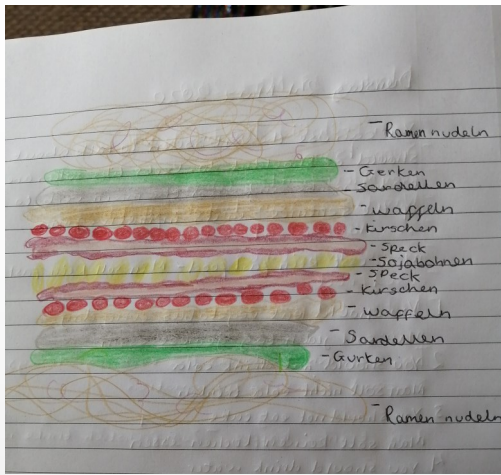 - Ramen nudeln
- Gerken
- Sardellen
- waffeln
- Kirschen
- Speck
- Sojabohnen
- Speck
- Kirschen
- waffeln
- Sardellen
- Gurken
- Ramen nudeln